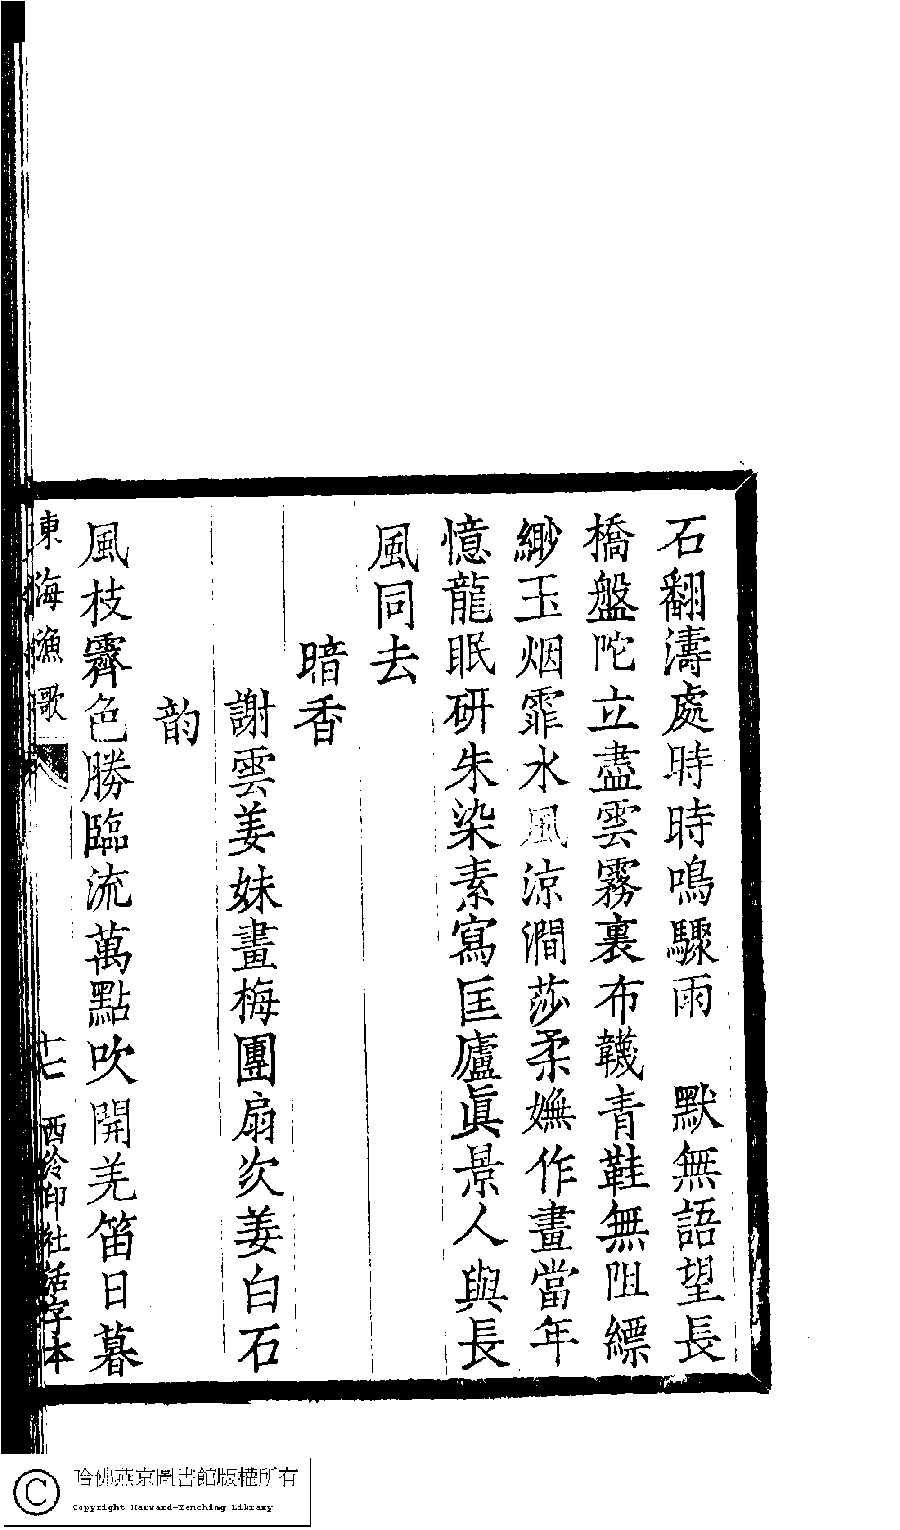 石翻濤處時時鳴驟雨　默無語望長
橋盤陀立盡雲霧裏布韈青鞋無阻縹
緲玉烟霏水風涼澗莎柔嫵作畫當年
憶龍眠硏朱染素寫匡廬眞景人與長
風同去
暗香
謝雲姜妹畫梅團扇次姜白石
韵
風枝霽色勝臨流萬點吹開羌笛日暮
東海漁歌
十七
西泠印社活字本
哈佛燕京圖書館版權所有
Copyright Harvard-Yenching Library